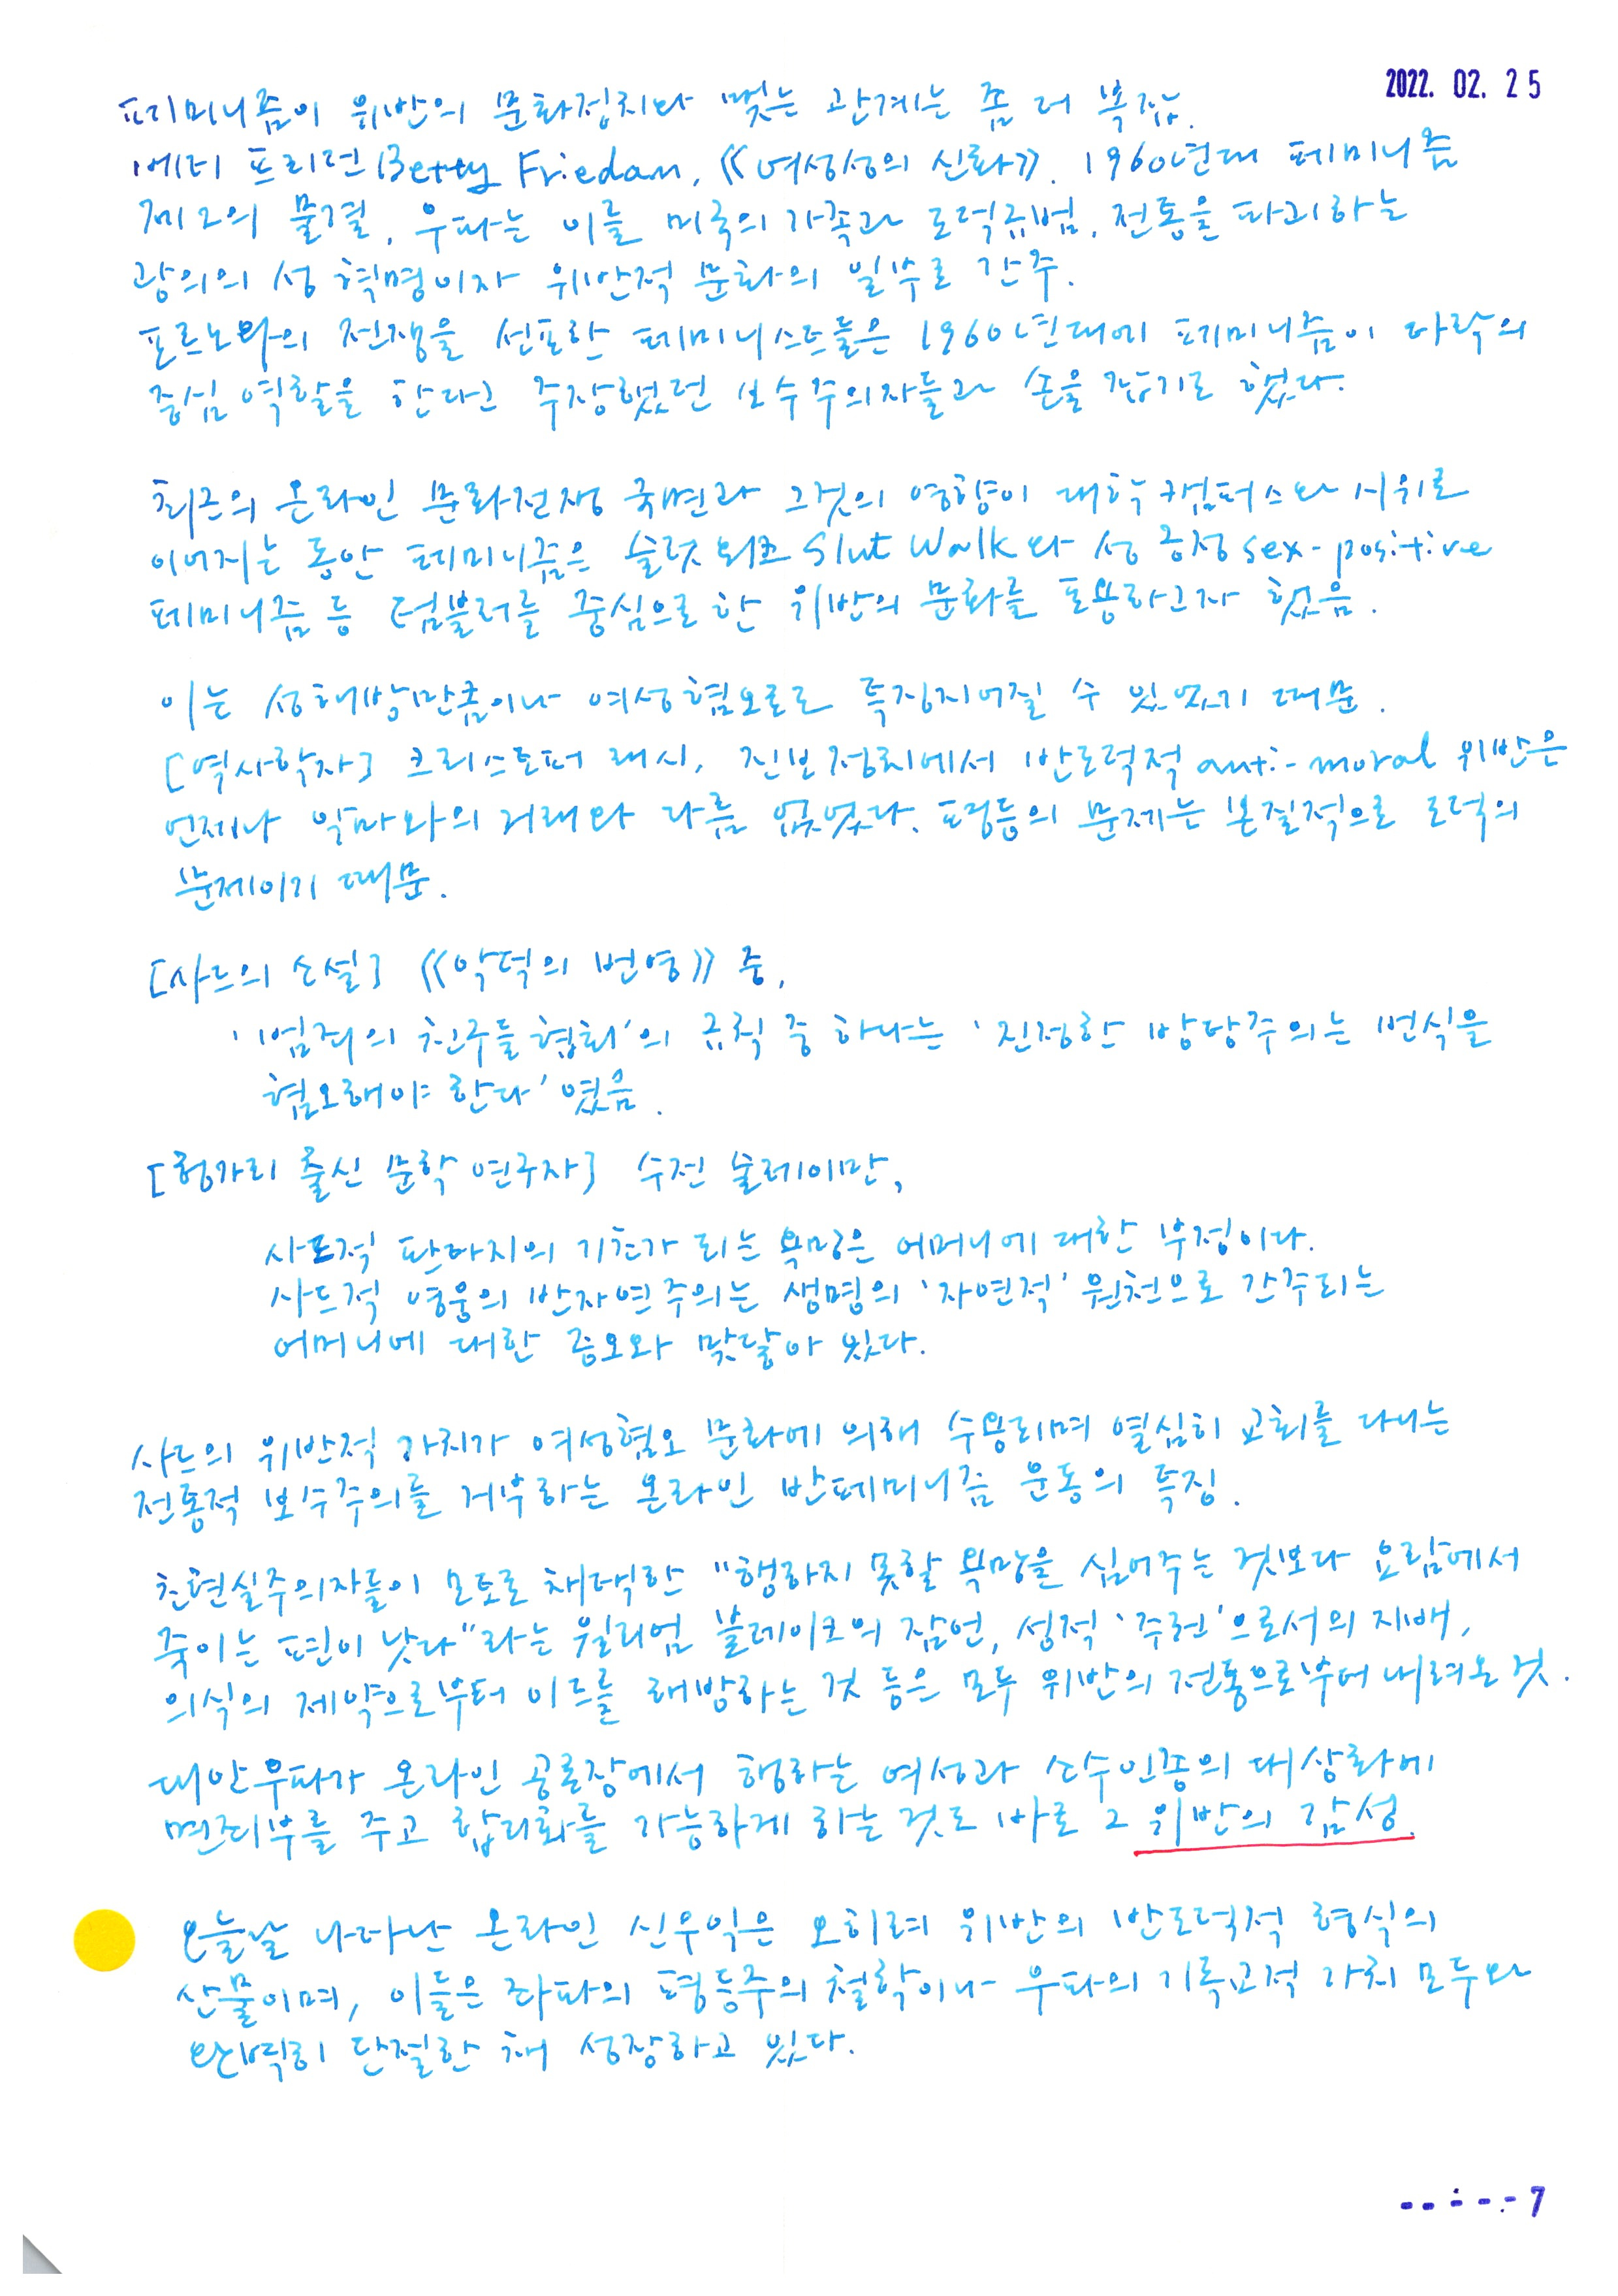 2022. 02. 25
페미니즘이 위반의 문화정치와 맺는 관계는 좀 더 복잡.
베티 프리던 Betty Friedan, 《여성성의 신화》. 1960년대 페미니즘
제2의 물결, 우파는 이를 미국의 가족과 도덕규범, 전통을 파괴하는
광의의 성 혁명이자 위반적 문화의 일부로 간주.
포르노와의 전쟁을 선포한 페미니스트들은 1960년대에 페미니즘이 타락의
중심 역할을 한다고 주장했던 보수주의자들과 손을 잡기로 했다.
최근의 온라인 문화전쟁 국면과 그것의 영향이 대학 캠퍼스와 시위로
이어지는 동안 페미니즘은 슬럿 워크 Slut Walk와 성 긍정 sex-positive
페미니즘 등 텀블러를 중심으로 한 위반의 문화를 포용하고자 했음.
이는 성해방만큼이나 여성혐오로도 특징지어질 수 있었기 때문.
[역사학자] 크리스토퍼 래시, 진보정치에서 반도덕적 anti-moral 위반은
언제나 악마와의 거래와 다름 없었다. 평등의 문제는 본질적으로 도덕의
문제이기 때문.
[사드의 소설] 《악덕의 번영》 중,
'범죄의 친구들 협회'의 규칙 중 하나는 '진정한 방탕주의는 번식을
혐오해야 한다'였음.
[헝가리 출신 문학 연구자] 수전 술레이만,
사드적 판타지의 기초가 되는 욕망은 어머니에 대한 부정이다.
사드적 영웅의 반자연주의는 생명의 '자연적' 원천으로 간주되는
어머니에 대한 증오와 맞닿아 있다.
사드의 위반적 가치가 여성혐오 문화에 의해 수용되며 열심히 교회를 다니는
전통적 보수주의를 거부하는 온라인 반페미니즘 운동의 특징.
초현실주의자들이 모토로 채택한 "행하지 못할 욕망을 심어주는 것보다 요람에서
죽이는 편이 낫다"라는 윌리엄 블레이크의 잠언, 성적 '주권'으로서의 지배,
의식의 제약으로부터 이드를 해방하는 것 등은 모두 위반의 전통으로부터 내려온 것.
대안우파가 온라인 공론장에서 행하는 여성과 소수인종의 대상화에
면죄부를 주고 합리화를 가능하게 하는 것도 바로 그 위반의 감성.
오늘날 나타난 온라인 신우익은 오히려 위반의 반도덕적 형식의
산물이며, 이들은 좌파의 평등주의 철학이나 우파의 기독교적 가치 모두와
완벽히 단절한 채 성장하고 있다.
7